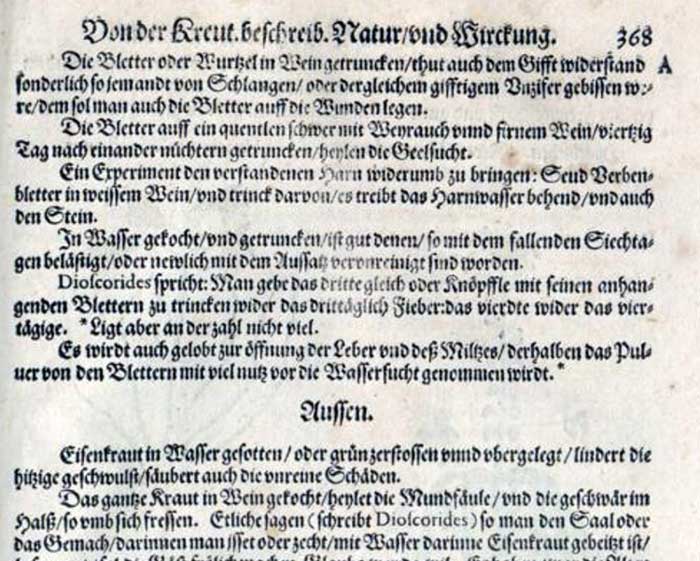 Von der Kreut. beschreib. Natur/vnd Wirckung. 368
Die Bletter oder Wurtzel in Wein getruncken/thut auch dem Gifft widerstand A
sonderlich so jemandt von Schlangen/ oder dergleichem gifftigem Vnzifer gebissen we-
re/dem sol man auch die Bletter auff die Wunden legen.
Die Bletter auff ein quentlen schwer mit Weyrauch vnnd firnem Wein/viertzig
Tag nach einander nüchtern getruncken/heylen die Geelsucht.
Ein Experiment den verstandenen Harn widerumb zu bringen: Seud Verben-
bletter in weissem Wein/vnd trinck darvon/es treibt das Harnwasser behend/vnd auch
den Stein.
In Wasser gekocht/vnd getruncken/ist gut denen/ so mit dem fallenden Siechta-
gen belästigt/oder newlich mit dem Aussatz vervnreinigt sind worden.
Dioscorides spricht: Man gebe das dritte gleich oder Knöpffle mit seinen anhan-
genden Blettern zu trincken wider das drittäglich Fieber:das vierdte wider das vier-
tägige. *Ligt aber an der zahl nicht viel.
Es wirdt auch gelobt zur öffnung der Leber vnd deß Miltzes/ derhalben das Pul-
uer von den Blettern mit viel nutz vor die Wassersucht genommen wirdt.*
Aussen.
Eisenkraut in Wasser gesotten/ oder grün zerstossen vnnd vbergelegt/lindert die
hitzige geschwulst/säubert auch die vnreine Schäden.
Das gantze Kraut in Wein gekocht/heylet die Mundfäule/vnd die geschwär im
Halß/so vmb sich fressen. Etliche sagen (schreibt Dioscorides) so man den Saal oder
das Gemach/darinnen man isset oder zecht/mit Wasser darinne Eisenkraut gebeitzt ist/